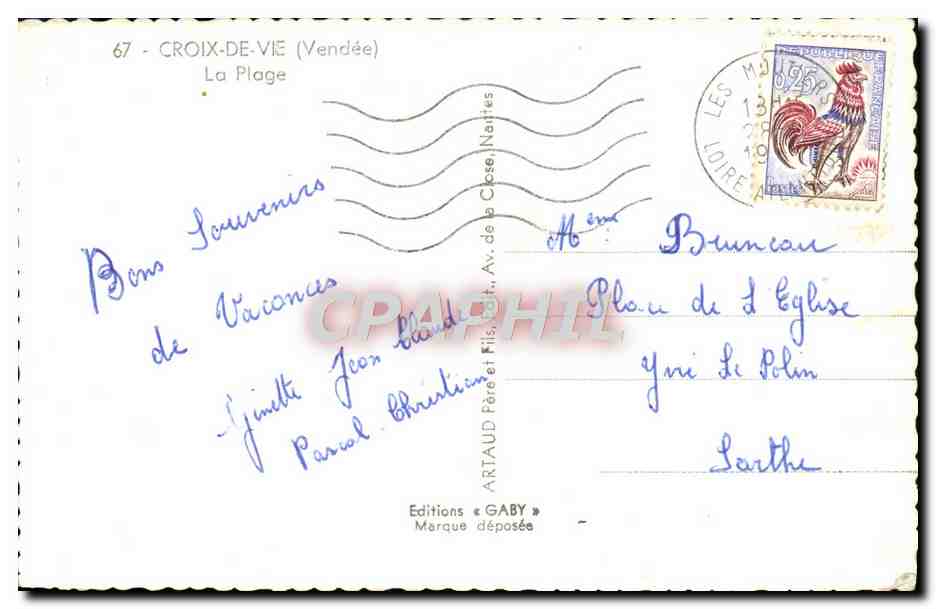 67 - CROIX-DE-VIE (Vendée)
La Plage
Bons Souvenirs
de Vacances
Ginette Jean Claude
Pascal. Christian
ARTAUD Père et Fils, Edit., Av. de la Close, Nantes
Editions « GABY »
Marque déposée
LES MOUTIERS
13H
LOIRE ATL
0,25
REPUBLIQUE FRANCAISE
Postes
Meme Bruneau
Place de L'Eglise
Yvré Le Polin
Sarthe
CPAPHIL